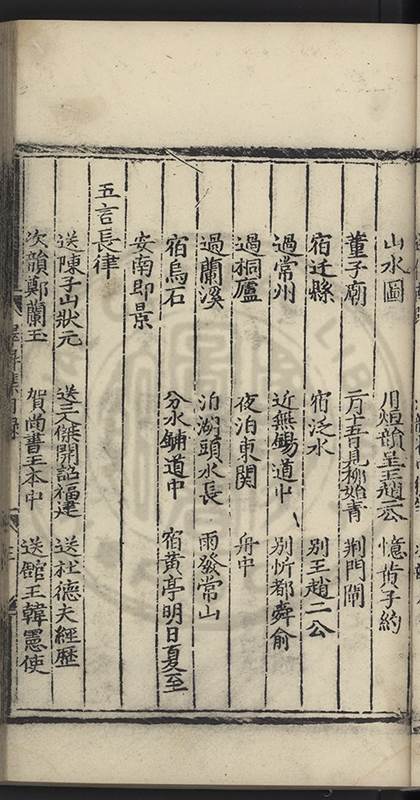 山水圖 用煙韻呈王趙二公 憶黃子約
董子廟 二月十五日見柳始青 荆門閘
宿迁縣 宿泛水 別王趙二公
過常州 近無錫道中 別忻都舜俞
過桐廬 夜泊東関 舟中
過蘭溪 泊湖頭水長 雨發常山
宿烏石 分水鋪道中 宿黄亭明日夏至
安南即景
五言長律
送陳子山狀元 送三傑開詔福建 送杜德夫經歷
次韻鄭蘭玉 賀尚書王本中 送舘王韓憲使